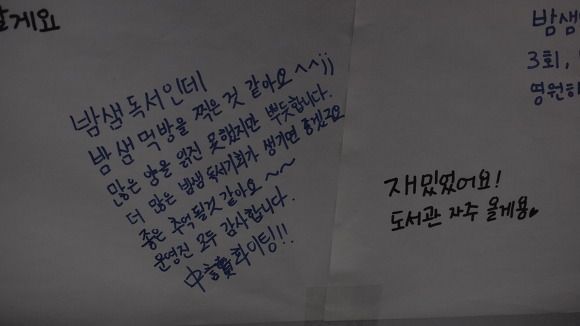 할게요
밤샘 독서인데
밤샘 먹방을 찍은 것 같아요^^;))
많은 양을 읽진 못했지만 뿌듯합니다.
더 많은 밤샘 독서기회가 생기면 좋겠고요
좋은 추억 될것 같아요~~
운영진 모두 감사합니다.
화이팅!!
재밌었어요!
도서관 자주 올게용
밤샘
3회,
영원히